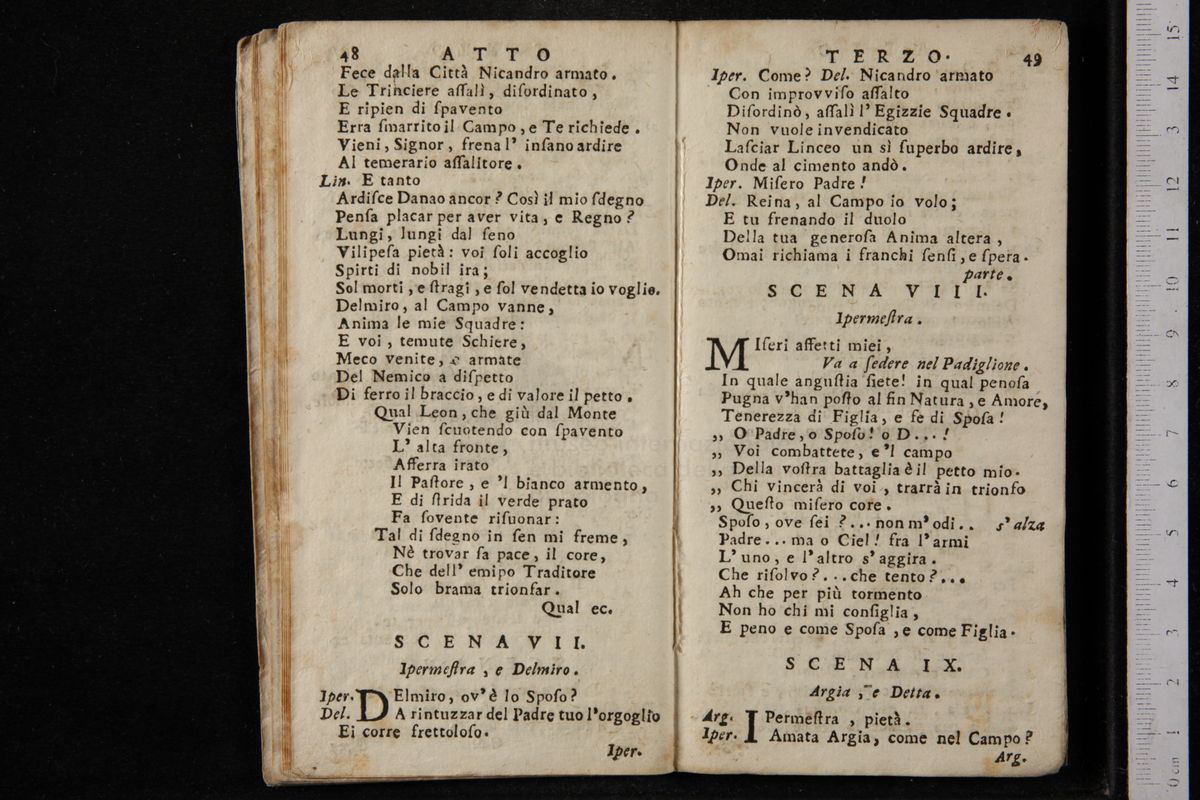 48 ATTO
Fece dalla Città Nicandro armato.
Le Trinciere aſſalì, diſordinato,
E ripien di ſpavento
Erra ſmarrito il Campo, e Te richiede.
Vieni, Signor, frena l' inſano ardire
Al temerario aſſalitore.
Lin. E tanto
Ardiſce Danao ancor? Così il mio ſdegno
Penſa placar per aver vita, e Regno?
Lungi, lungi dal ſeno
Vilipeſa pietà: voi ſoli accoglio
Spirti di nobil ira;
Sol morti, e ſtragi, e ſol vendetta io voglio.
Delmiro, al Campo vanne,
Anima le mie Squadre:
E voi, temute Schiere,
Meco venite, e armate
Del Nemico a diſpetto
Di ferro il braccio, e di valore il petto.
Qual Leon, che giù dal Monte
Vien ſcuotendo con ſpavento
L' alta fronte,
Afferra irato
Il Paſtore, e 'l bianco armento,
E di ſtrida il verde prato
Fa ſovente riſuonar:
Tal di ſdegno in ſen mi freme,
Nè trovar ſa pace, il core,
Che dell' emipo Traditore
Solo brama trionfar.
Qual ec.
SCENA VII.
Ipermeſtra, e Delmiro.
Iper. DElmiro, ov' è lo Spoſo?
Del. A rintuzzar del Padre tuo l'orgoglio
Ei corre frettoloſo.
Iper.
TERZO. 49
Iper. Come? Del. Nicandro armato
Con improvviſo aſſalto
Diſordinò, aſſalì l' Egizzie Squadre.
Non vuole invendicato
Laſciar Linceo un sì ſuperbo ardire,
Onde al cimento andò.
Iper. Miſero Padre!
Del. Reina, al Campo io volo;
E tu frenando il duolo
Della tua generoſa Anima altera,
Omai richiama i franchi ſenſi, e ſpera.
parte.
SCENA VIII.
Ipermeſtra.
MIſeri affetti miei,
Va a ſedere nel Padiglione.
In quale anguſtia ſiete! in qual penoſa
Pugna v'han poſto al fin Natura, e Amore,
Tenerezza di Figlia, e fe di Spoſa!
„ O Padre, o Spoſo! o D...!
„ Voi combattete, e 'l campo
„ Della voſtra battaglia è il petto mio.
„ Chi vincerà di voi, trarrà in trionfo
„ Queſto miſero core.
Spoſo, ove ſei?... non m' odi.. s' alza
Padre... ma o Ciel! fra l'armi
L' uno, e l'altro s' aggira.
Che riſolvo?...che tento?...
Ah che per più tormento
Non ho chi mi conſiglia,
E peno e come Spoſa, e come Figlia.
SCENA IX.
Argia, e Detta.
Arg. IPermeſtra, pietà.
Iper. Amata Argia, come nel Campo?
Arg.